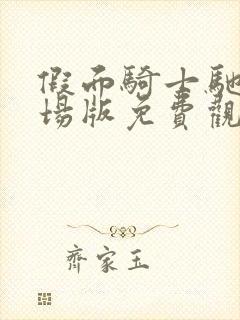 假而騎士馳
場版免費觀
齊家玉